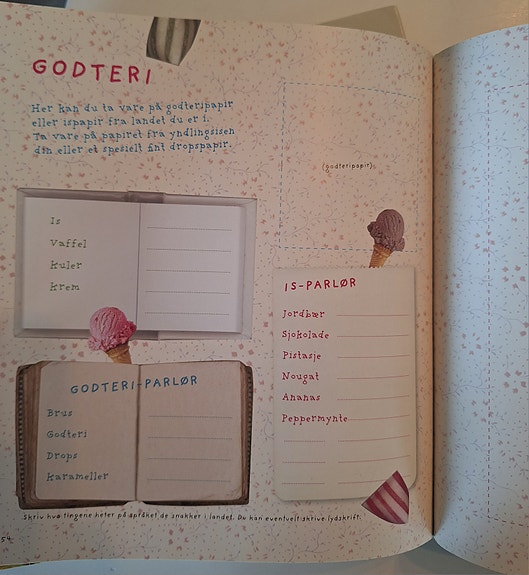 GODTERI
Her kan du ta vare på godteripapir
eller ispapir fra landet du er i.
Ta vare på papiret fra yndlingsisen
din eller et spesielt fint dropspapir.
(godteripapir)
Is
Vaffel
Kuler
Krem
IS-PARLØR
Jordbær
Sjokolade
Pistasje
Nougat
Ananas
Peppermynte
GODTERI-PARLØR
Brus
Godteri
Drops
Karameller
Skriv hva tingene heter på språket de snakker i landet. Du kan eventuelt skrive lydskrift.
54